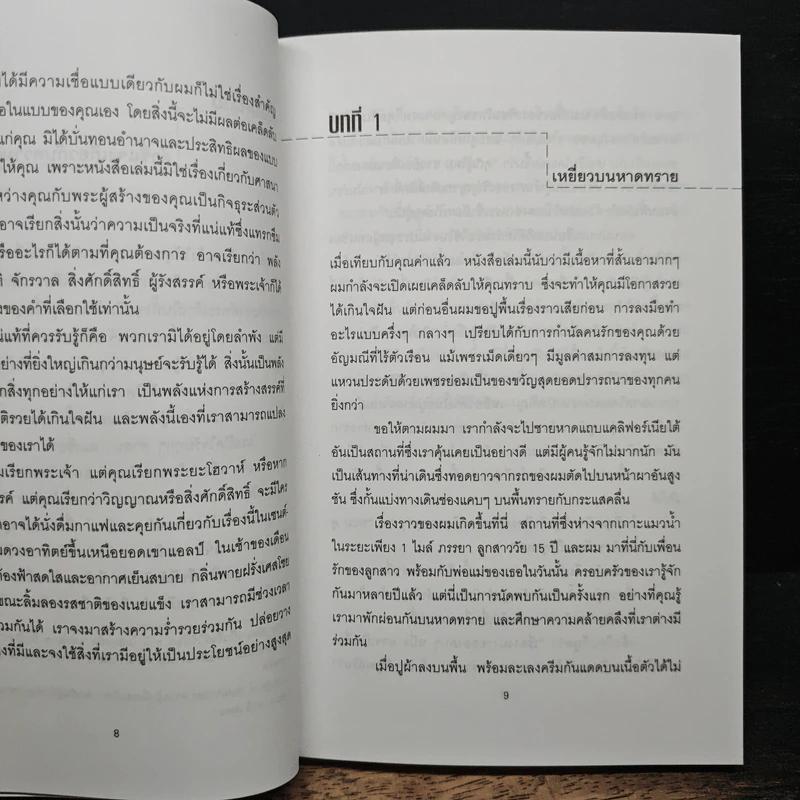 ได้มีความเชื่อแบบเดียวกับผมก็ไม่ใช่เรื่องสำคัญ
อในแบบของคุณเอง โดยสิ่งนี้จะไม่มีผลต่อเคล็ดลับ
แก่คุณ มิได้บั่นทอนอำนาจและประสิทธิผลของแบบ
ให้คุณ เพราะหนังสือเล่มนี้มิใช่เรื่องเกี่ยวกับศาสนา
หว่างคุณกับพระผู้สร้างของคุณเป็นกิจธุระส่วนตัว
อาจเรียกสิ่งนั้นว่าความเป็นจริงที่แน่แท้ซึ่งแทรกซึม
รืออะไรก็ได้ตามที่คุณต้องการ อาจเรียกว่า พลัง
ติ จักรวาล สิ่งศักดิ์สิทธิ์ ผู้รังสรรค์ หรือพระเจ้าก็ได้
ของคำที่เลือกใช้เท่านั้น
น่แท้ที่ควรรับรู้ก็คือ พวกเรามิได้อยู่โดยลำพัง แต่มี
อย่างที่ยิ่งใหญ่เกินกว่ามนุษย์จะรับรู้ได้ สิ่งนั้นเป็นพลัง
กสิ่งทุกอย่างให้แก่เรา เป็นพลังแห่งการสร้างสรรค์ที่
ติรวยได้เกินใจฝัน และพลังนี้เองที่เราสามารถแปลง
ของเราได้
มเรียกพระเจ้า แต่คุณเรียกพระยะโฮวาห์ หรือหาก
รค์ แต่คุณเรียกว่าวิญญาณหรือสิ่งศักดิ์สิทธิ์ จะมีใคร
อาจได้นั่งดื่มกาแฟและคุยกันเกี่ยวกับเรื่องนี้ในเซนต์-
มดวงอาทิตย์ขึ้นเหนือยอดเขาแอลป์ ในเช้าของเดือน
ท้องฟ้าสดใสและอากาศเย็นสบาย กลิ่นพายฝรั่งเศสโชย
ขณะลิ้มลองรสชาติของเนยแข็ง เราสามารถมีช่วงเวลา
วมกันได้ เราจงมาสร้างความร่ำรวยร่วมกัน ปล่อยวาง
งที่มีและจงใช้สิ่งที่เรามีอยู่ให้เป็นประโยชน์อย่างสูงสุด
8
บทที่ 1
เหยี่ยวบนหาดทราย
เมื่อเทียบกับคุณค่าแล้ว หนังสือเล่มนี้นับว่ามีเนื้อหาที่สั้นเอามากๆ
ผมกำลังจะเปิดเผยเคล็ดลับให้คุณทราบ ซึ่งจะทำให้คุณมีโอกาสรวย
ได้เกินใจฝัน แต่ก่อนอื่นผมขอปูพื้นเรื่องราวเสียก่อน การลงมือทำ
อะไรแบบครึ่งๆ กลางๆ เปรียบได้กับการกำนัลคนรักของคุณด้วย
อัญมณีที่ไร้ตัวเรือน แม้เพชรเม็ดเดี่ยวๆ มีมูลค่าสมการลงทุน แต่
แหวนประดับด้วยเพชรย่อมเป็นของขวัญสุดยอดปรารถนาของทุกคน
ยิ่งกว่า
ขอให้ตามผมมา เรากำลังจะไปชายหาดแถบแคลิฟอร์เนียใต้
อันเป็นสถานที่ซึ่งเราคุ้นเคยเป็นอย่างดี แต่มีผู้คนรู้จักไม่มากนัก มัน
เป็นเส้นทางที่น่าเดินซึ่งทอดยาวจากรถของผมตัดไปบนหน้าผาอันสูง
ชัน ซึ่งกั้นแบ่งทางเดินช่องแคบๆ บนพื้นทรายกับกระแสคลื่น
เรื่องราวของผมเกิดขึ้นที่นี่ สถานที่ซึ่งห่างจากเกาะแมวน้ำ
ในระยะเพียง 1 ไมล์ ภรรยา ลูกสาววัย 15 ปี และผม มาที่นี่กับเพื่อน
รักของลูกสาว พร้อมกับพ่อแม่ของเธอในวันนั้น ครอบครัวของเรารู้จัก
กันมาหลายปีแล้ว แต่นี่เป็นการนัดพบกันเป็นครั้งแรก อย่างที่คุณรู้
เรามาพักผ่อนกันบนหาดทราย และศึกษาความคล้ายคลึงที่เราต่างมี
ร่วมกัน
เมื่อปูผ้าลงบนพื้น พร้อมละเลงครีมกันแดดบนเนื้อตัวได้ไม่
9